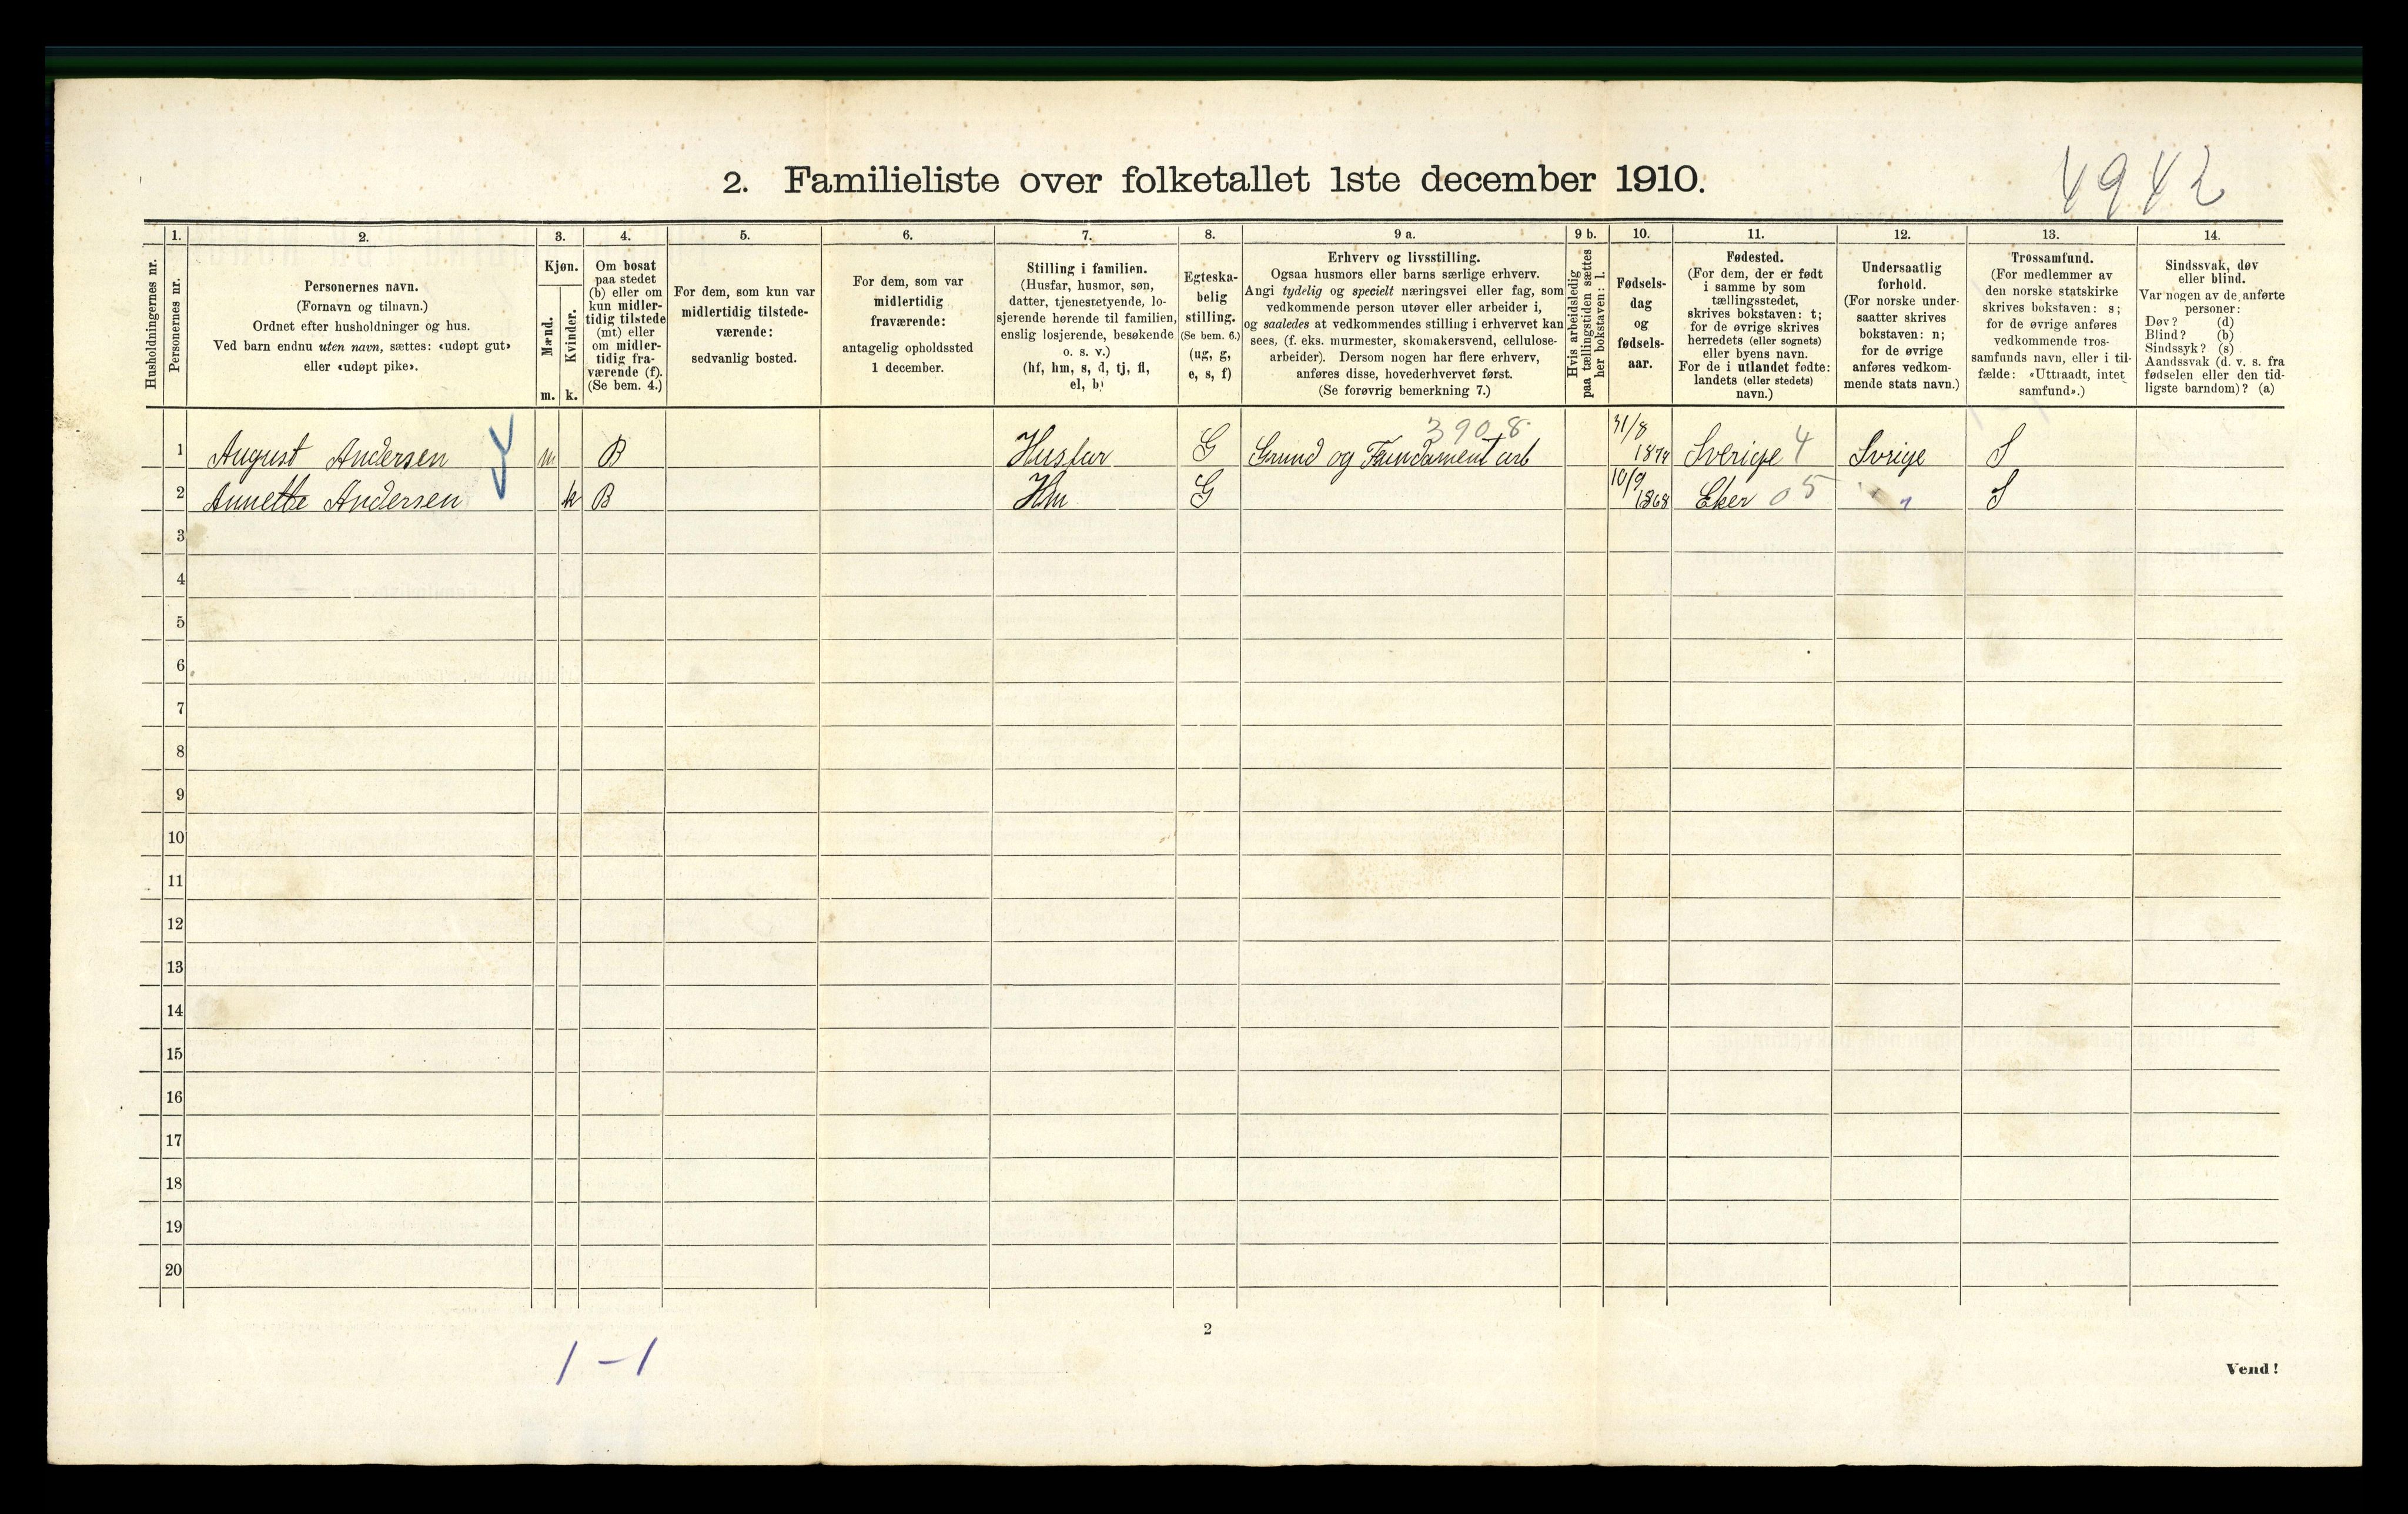 4942
2. Familieliste over folketallet 1ste december 1910.
Husholdningernes nr.
1.
Personernes nr.
2.
Personernes navn.
(Fornavn og tilnavn.)
Ordnet efter husholdninger og hus.
Ved barn endnu uten navn, sættes: «udøpt gut»
eller «udøpt pike».
3.
Kjøn.
Mænd.
Kvinder.
m. k.
4.
Om bosat
paa stedet
(b) eller om
kun midler-
tidig tilstede
(mt) eller
om midler-
tidig fra-
værende (f).
(Se bem. 4.)
5.
For dem, som kun var
midlertidig tilstede-
værende:
sedvanlig bosted.
6.
For dem, som var
midlertidig
fraværende:
antagelig opholdssted
1 december.
7.
Stilling i familien.
(Husfar, husmor, søn,
datter, tjenestetyende, lo-
sjerende hørende til familien,
enslig losjerende, besøkende
o. s. v.)
(hf, hm, s, d, tj, fl,
el, b)
8.
Egteska-
belig
stilling.
(Se bem. 6.)
(ug, g,
e, s, f)
9 a.
Erhverv og livsstilling.
Ogsaa husmors eller barns særlige erhverv.
Angi tydelig og specielt næringsvei eller fag, som
vedkommende person utøver eller arbeider i,
og saaledes at vedkommendes stilling i erhvervet kan
sees, (f. eks. murmester, skomakersvend, cellulose-
arbeider). Dersom nogen har flere erhverv,
anføres disse, hovederhvervet først.
(Se forøvrig bemerkning 7.)
9 b.
Hvis arbeidsledig
paa tællingstiden sættes
her bokstaven: l.
10.
Fødsels-
dag
og
fødsels-
aar.
11.
Fødested.
(For dem, der er født
i samme by som
tællingsstedet,
skrives bokstaven: t;
for de øvrige skrives
herredets (eller sognets)
eller byens navn.
For de i utlandet fødte:
landets (eller stedets)
navn.)
12.
Undersaatlig
forhold.
(For norske under-
saatter skrives
bokstaven: n;
for de øvrige
anføres vedkom-
mende stats navn.)
13.
Trossamfund.
(For medlemmer av
den norske statskirke
skrives bokstaven: s;
for de øvrige anføres
vedkommende tros-
samfunds navn, eller i til-
fælde: «Uttraadt, intet
samfund».)
14.
Sindssvak, døv
eller blind.
Var nogen av de anførte
personer:
Døv? (d)
Blind? (b)
Sindssyk? (s)
Aandssvak (d. v. s. fra
fødselen eller den tid-
ligste barndom)? (a)
3908
1 August Andersen m B Husfar G Grund og Fundament arb 31/8 1874 Sverige 4 Svrige S
2 Annette Andersen k B Hm G 10/9 1868 Eker 05 " S
3
4
5
6
7
8
9
10
11
12
13
14
15
16
17
18
19
20
2
1-1
Vend!